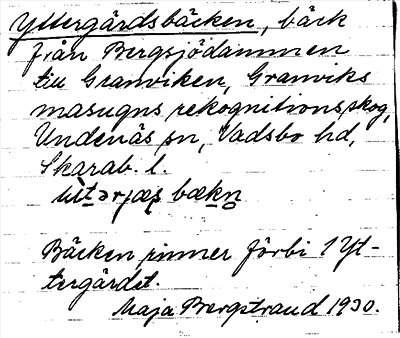 Yttergärdsbäcken, bäck
från Bergsjödammen
till Granviken, Granviks
masugns rekognitionsskog,
Undenäs sn, Vadsbo hd,
Skarab. l.
bækn̥
Bäcken rinner förbi 1 Yt-
tergärdet.
Maja Bergstrand 1930.